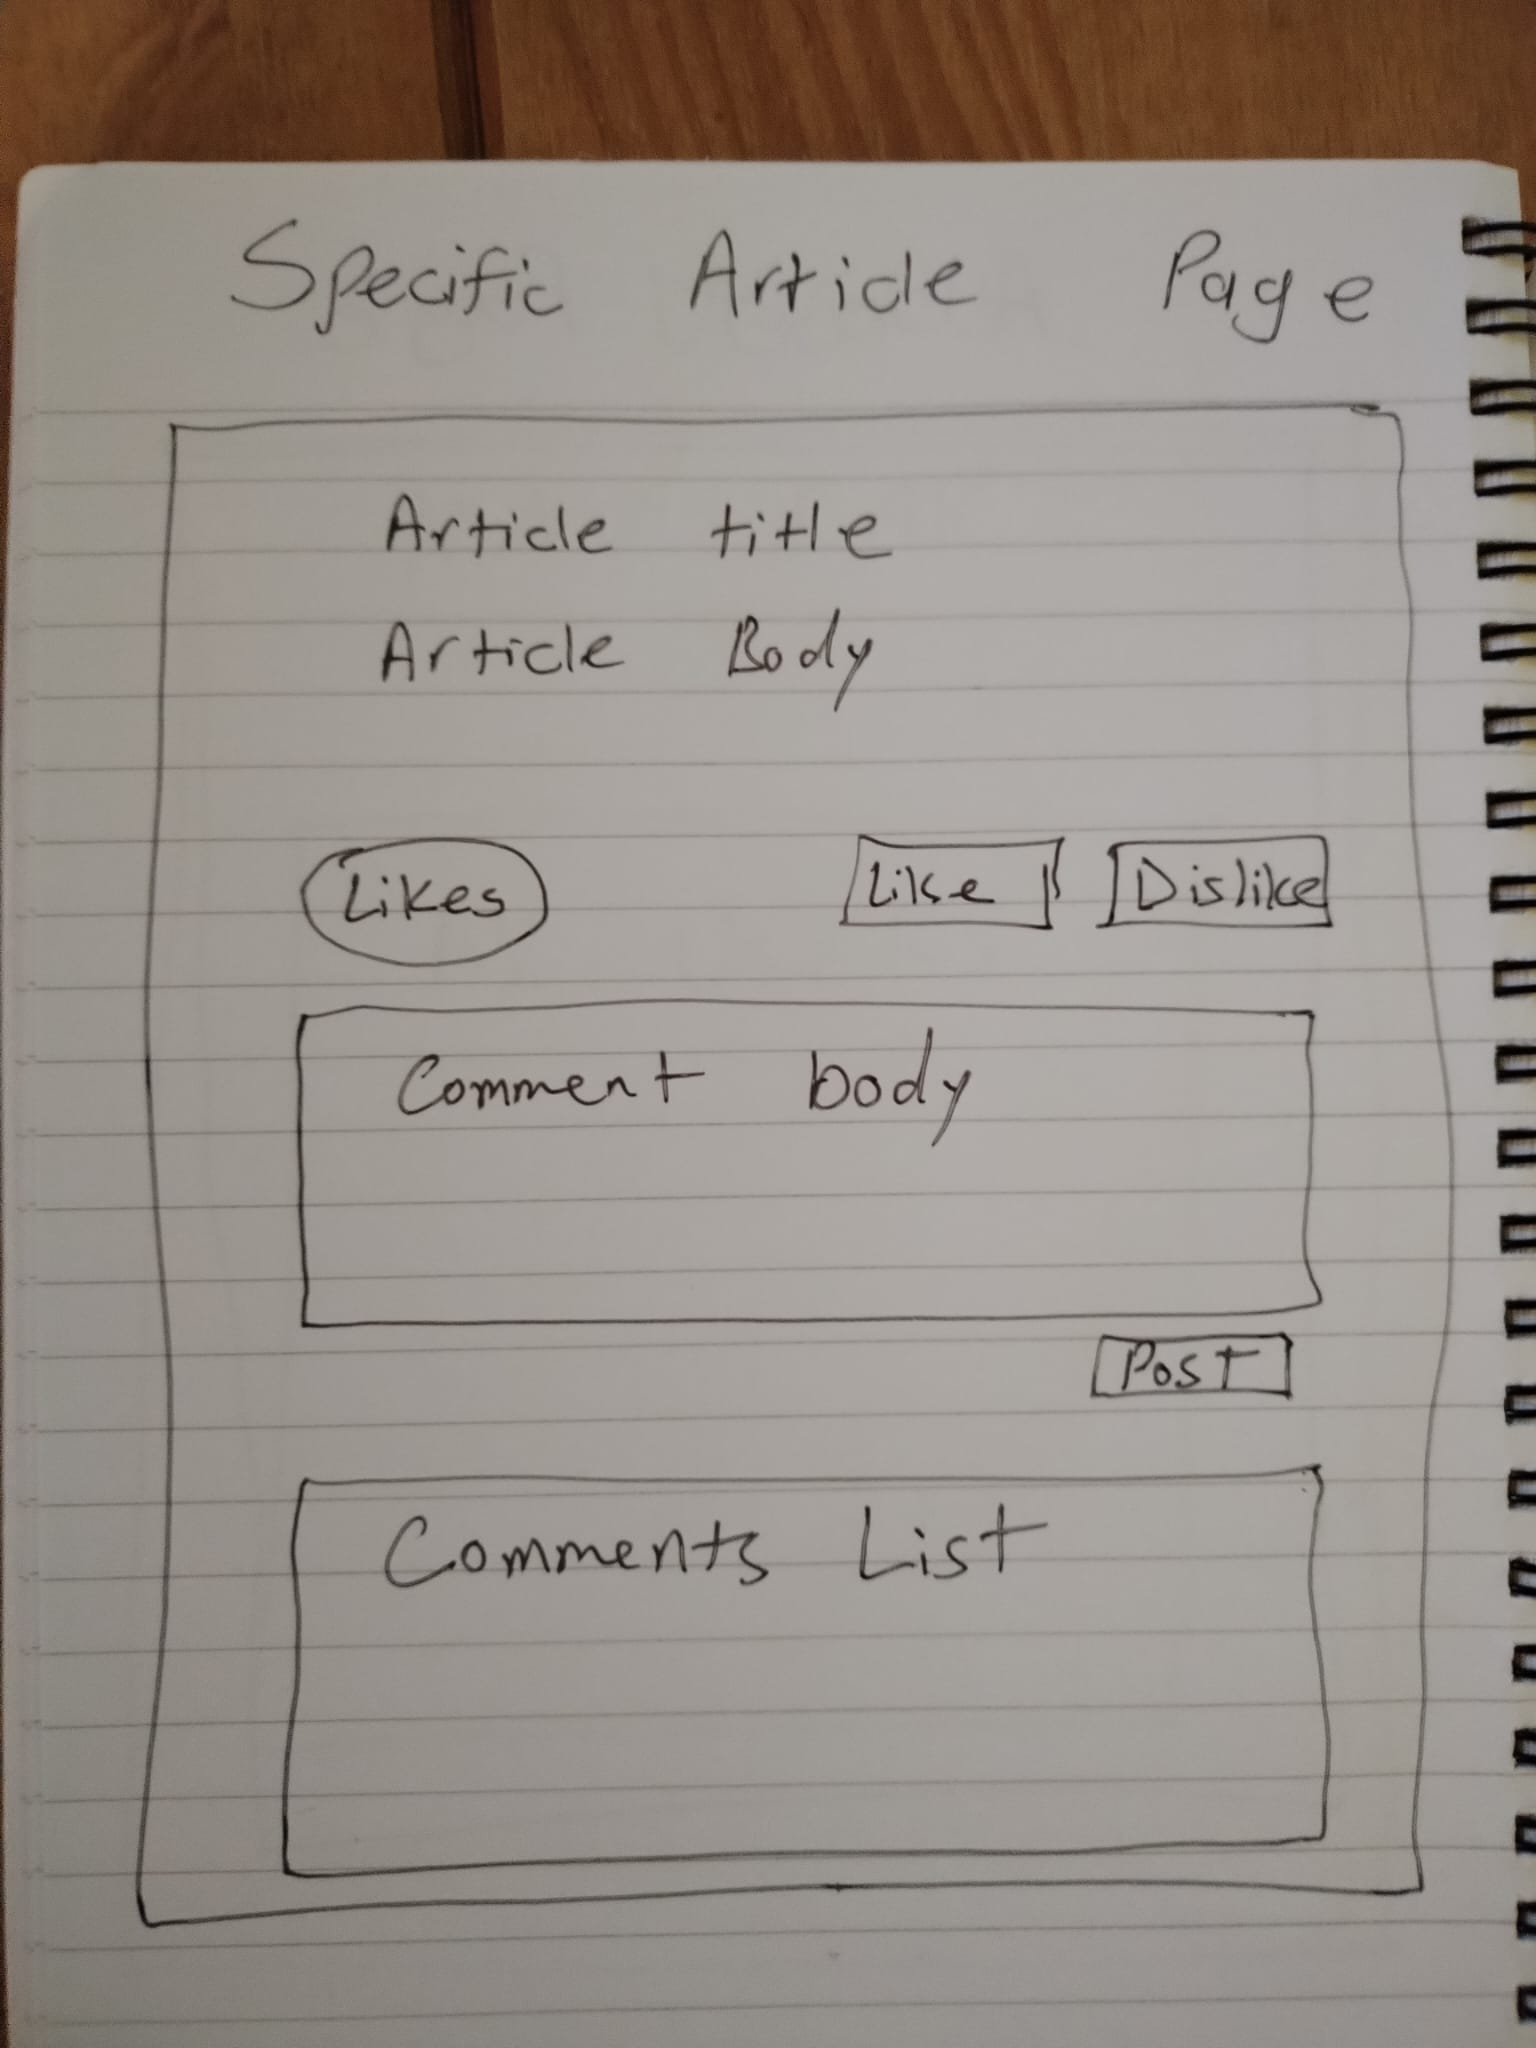 Specific Article Page
Article title
Article Body
Likes Like Dislike
Comment body
Post
Comments List